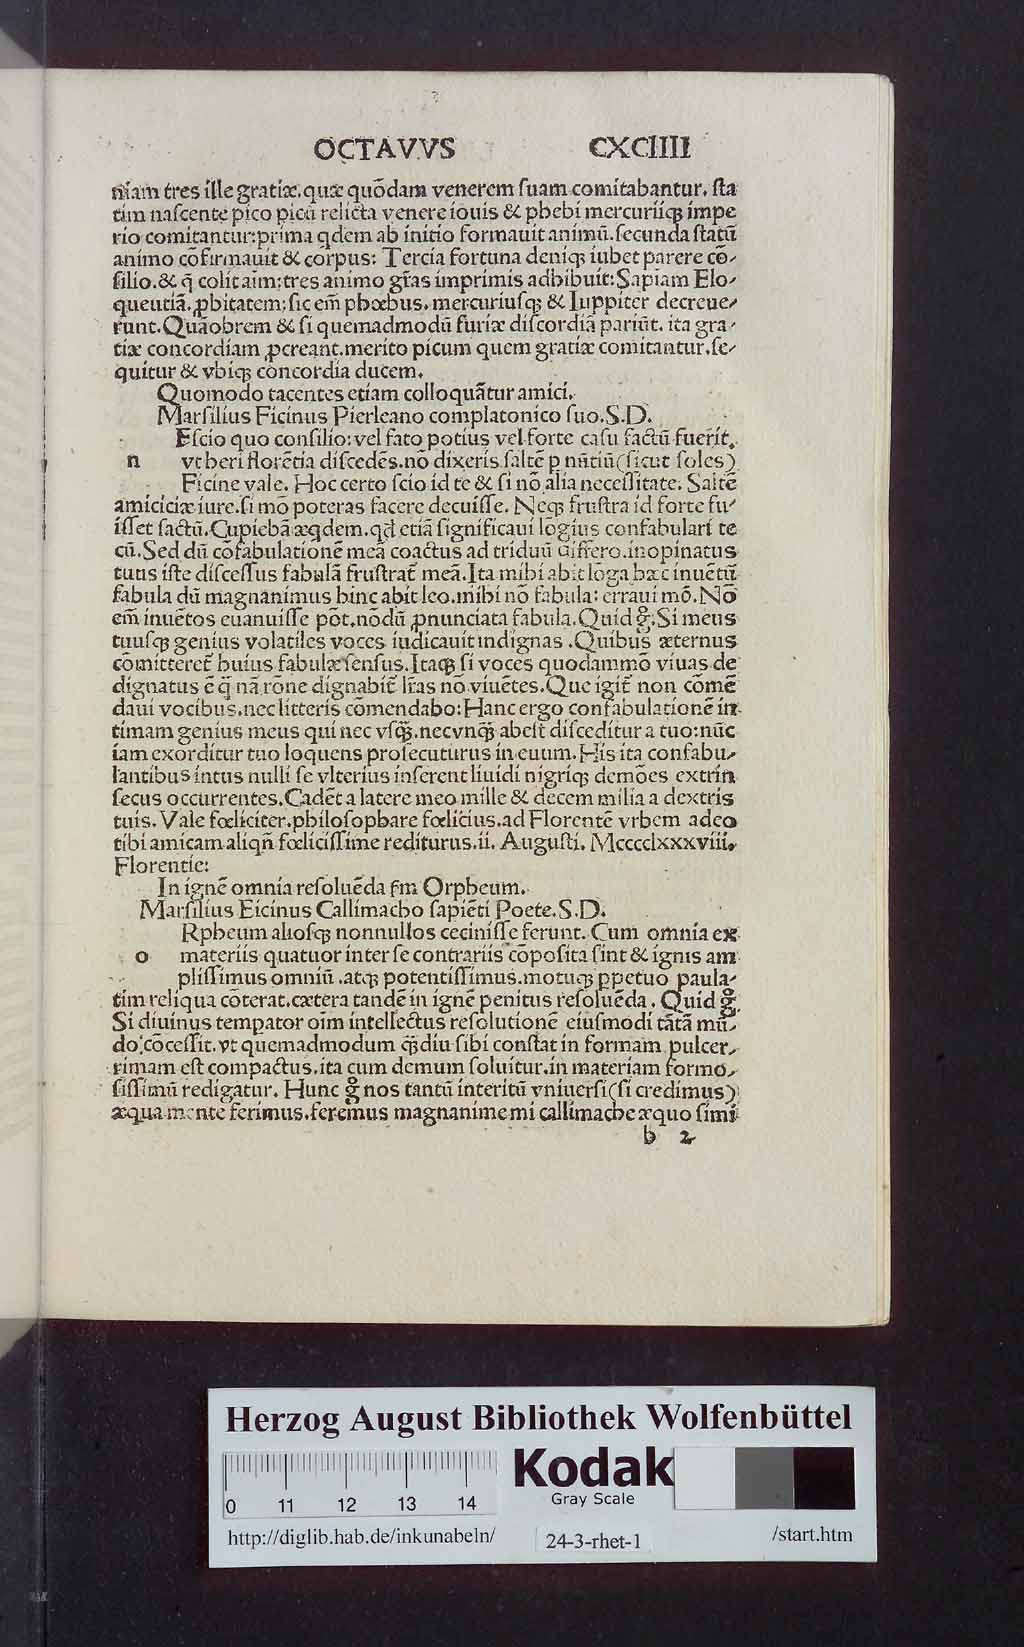 OCTAVVS CXCIIII
niam tres ille gratiæ. quæ quōdam venerem suam comitabantur. sta
tim nascente pico picū relicta venere iouis & phebi mercuriiqꝫ impe
rio comitantur: prima qdem ab initio formauit animū. secunda statū
animo cōfirmauit & corpus: Tercia fortuna deniqꝫ iubet parere cō-
silio. & q̄ colit aīm: tres animo grās imprimis adhibuit: Sapiam Elo-
queutiā. ꝓbitatem: sic em̄ phœbus. mercuriusqꝫ & Iuppiter decreue-
runt. Quāobrem & si quemadmodū furiæ discordiā pariūt. ita gra-
tiæ concordiam ꝓcreant. merito picum quem gratiæ comitantur. se-
quitur & vbiqꝫ concordia ducem.
Quomodo tacentes etiam colloquātur amici.
Marsilius Ficinus Pierleano complatonico suo. S. D.
Escio quo consilio: vel fato potius vel forte casu factū fuerit.
n vt heri florētia discedēs. nō dixeris saltē p nūtiū (sicut soles)
Ficine vale. Hoc certo scio id te & si nō alia necessitate. Saltē
amiciciæ iure. si mō poteras facere decuisse. Neqꝫ frustra id forte fu-
isset factū. Cupiebā æqdem. qd etiā significaui lōgius confabulari te
cū. Sed dū cōfabulationē meā coactus ad triduū differo. inopinatus
tuus iste discessus fabulā frustrat̄ meā. Ita mihi abit lōga hæc inuētū
fabula dū magnanimus hinc abit leo. mihi nō fabula: erraui mō. Nō
em̄ inuētos euanuisse pōt. nōdū ꝓnunciata fabula. Quid gͦ. Si meus
tuusqꝫ genius volatiles voces iudicauit indignas. Quibus æternus
cōmitteret̄ huius fabulæ sensus. Itaqꝫ si voces quodammō viuas de
dignatus ē q̄ nā rōne dignabit̄ lr̄as nō viuētes. Que igit̄ non cōmē
daui vocibus. nec litteris cōmendabo: Hanc ergo confabulationē in
timam genius meus qui nec vsqꝫ̄. nec vnqꝫ̄ abest disceditur a tuo: nūc
iam exorditur tuo loquens prosecuturus in euum. His ita confabu-
lantibus intus nulli se vlterius inserent liuidi nigriqꝫ demōes extrin
secus occurrentes. Cadēt a latere meo mille & decem milia a dextris
tuis. Vale fœliciter. philosophare fœlicius. ad Florentē vrbem adeo
tibi amicam aliqn̄ fœlicissime rediturus. ii. Augusti. Mcccclxxxviii.
Florentie:
In ignē omnia resoluēda fm Orpheum.
Marsilius Eicinus Callimacho sapiēti Poete. S. D.
Rpheum aliosqꝫ nonnullos cecinisse ferunt. Cum omnia ex
o materiis quatuor inter se contrariis cōposita sint & ignis am
plissimus omniū. atqꝫ potentissimus. motuqꝫ ꝑpetuo paula-
tim reliqua cōterat. cætera tandē in ignē penitus resoluēda. Quid gͦ
Si diuinus tempator oīm intellectus resolutionē eiusmodi tātā mū-
do: cōcessit. vt quemadmodum qꝫ̄diu sibi constat in formam pulcer-
rimam est compactus. ita cum demum soluitur. in materiam formo-
sissimū redigatur. Hunc gͦ nos tantū interitū vniuersi (si credimus)
æqua mente ferimus. feremus magnanime mi callimache æquo simi
b 2
Herzog August Bibliothek Wolfenbüttel
0 11 12 13 14
Kodak
Gray Scale
http://diglib.hab.de/inkunabeln/ 24-3-rhet-1 /start.htm